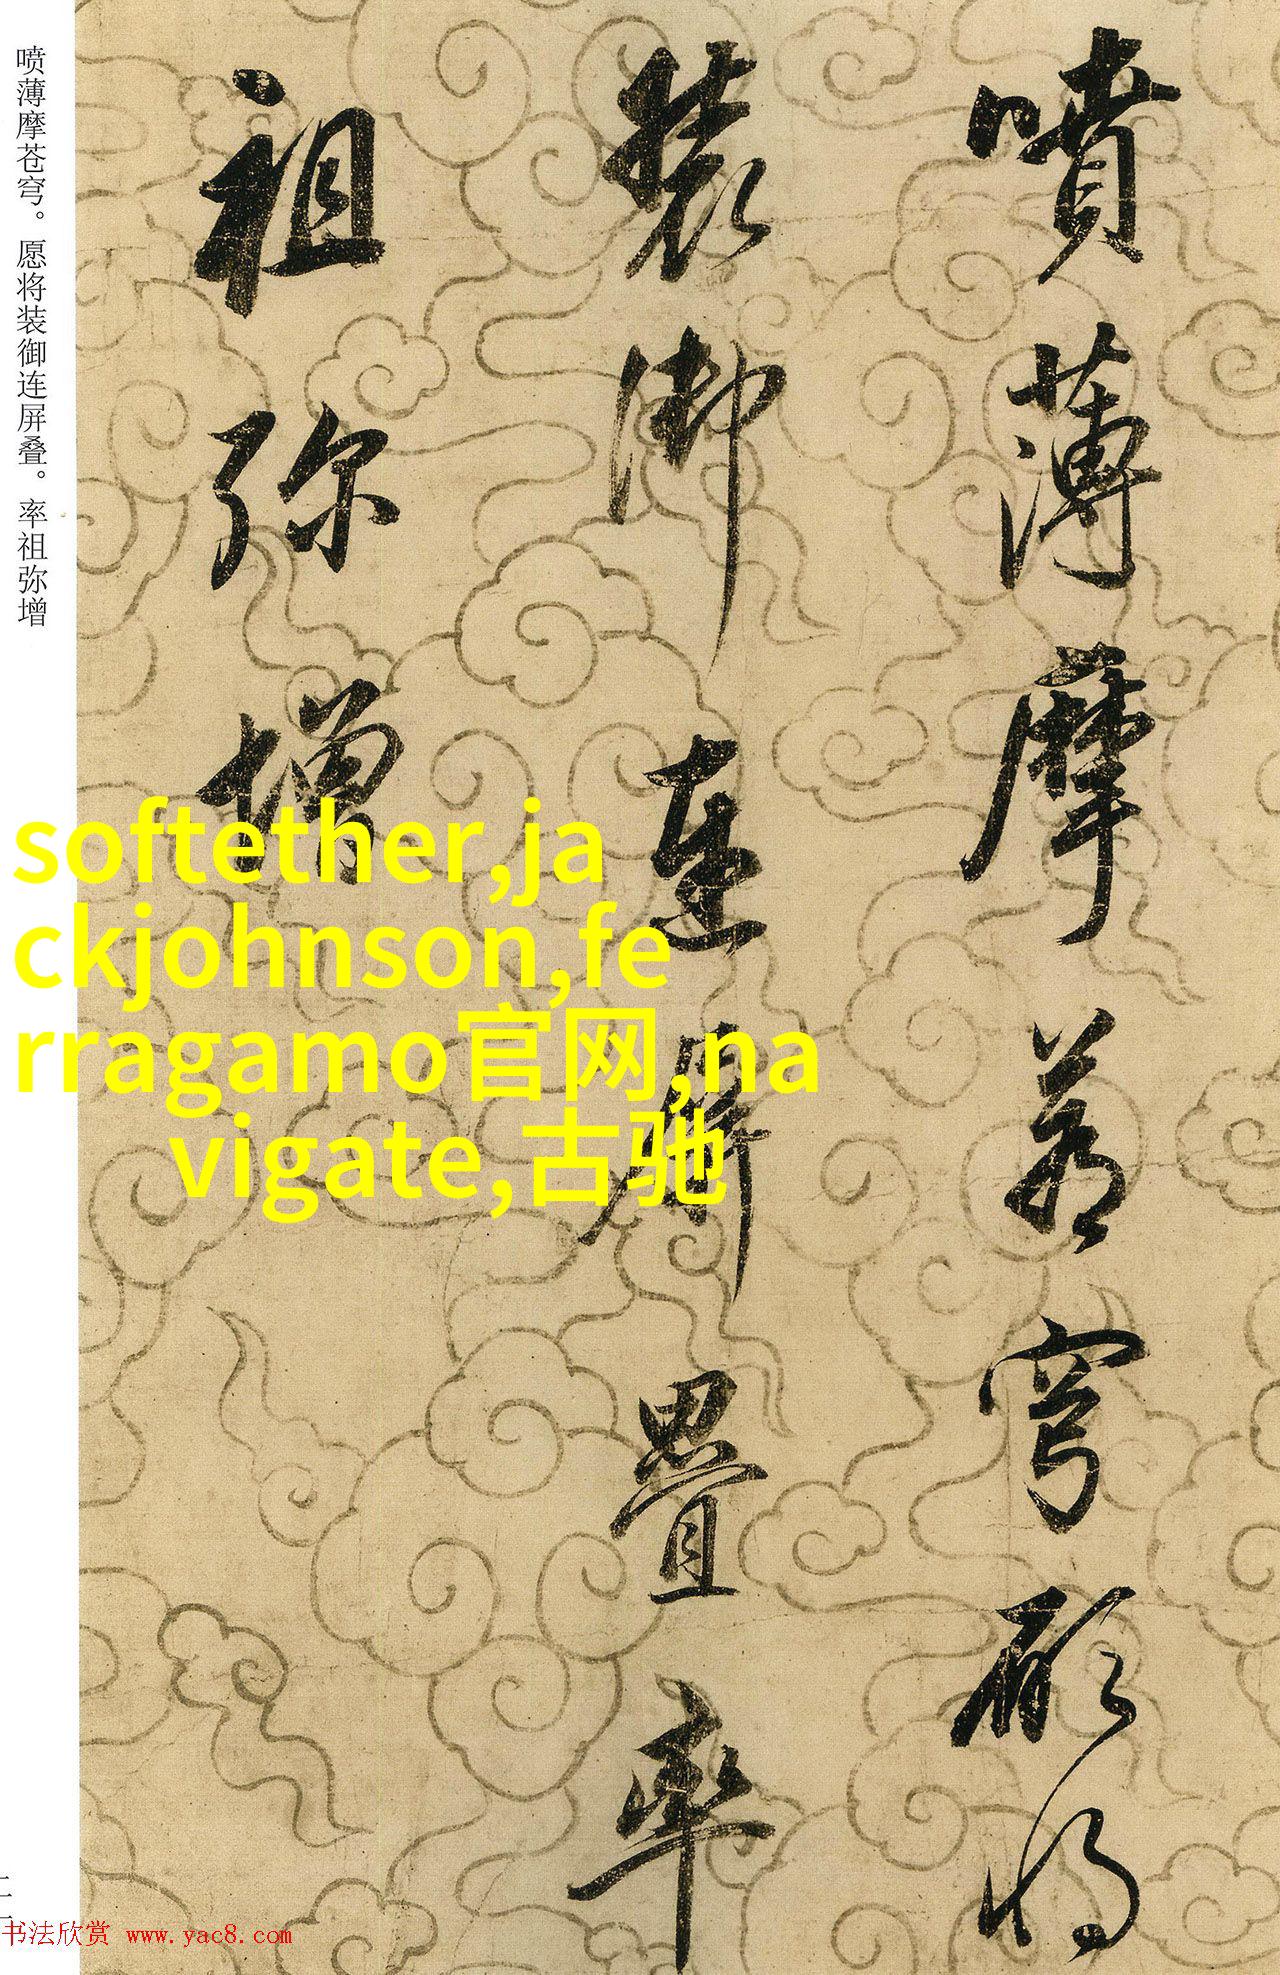 噴薄摩蒼穹願將
裝御連屏疊率
祖弥增
喷薄摩苍穹。愿将装御连屏叠。率祖弥增
softether,ja
ckjohnson,fe
rragamo官网,na
vigate,古驰
书法欣赏 www.yac8.com